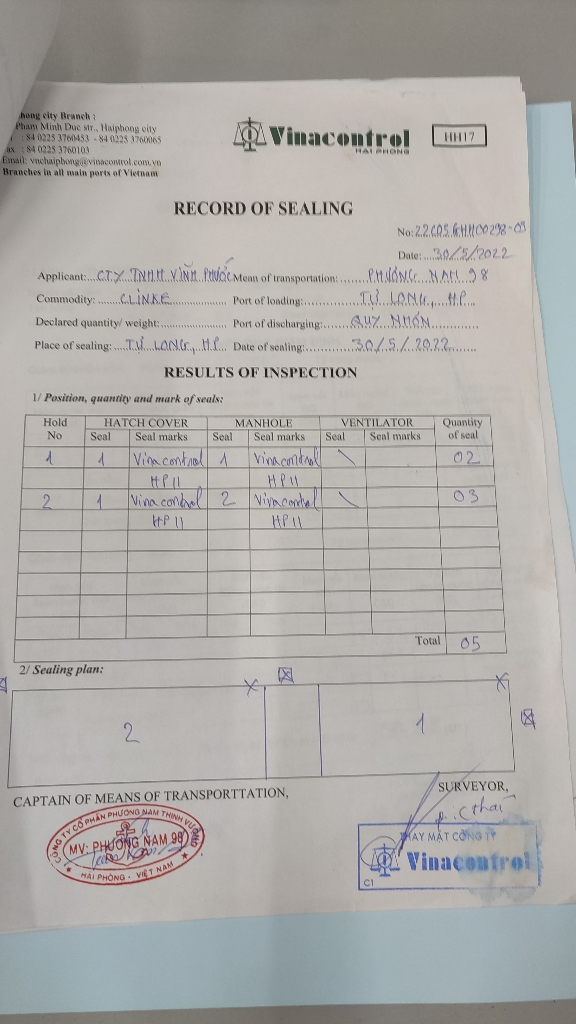 hong city Branch :
Pham Minh Duc str., Haiphong city
: 84 0225 3760453 - 84 0225 3760065
ax : 84 0225 3760103
Email: vnchaiphong@vinacontrol.com.vn
Branches in all main ports of Vietnam
Vinacontrol
HAI PHONG
HH17
RECORD OF SEALING
No: 22C05GHH00298-03
Date: 30/5/2022
Applicant: CTY TNHH VĨNH PHƯỚC Mean of transportation: PHƯƠNG NAM 98
Commodity: CLINKE Port of loading: TỰ LONG, HP
Declared quantity/ weight: Port of discharging: QUY NHƠN
Place of sealing: TỰ LONG, HP Date of sealing: 30/5/2022
RESULTS OF INSPECTION
1/ Position, quantity and mark of seals:
Hold No HATCH COVER MANHOLE VENTILATOR Quantity of seal
Seal Seal marks Seal Seal marks Seal Seal marks
1 1 Vinacontrol 1 Vinacontrol \ 02
HP11 HP11
2 1 Vinacontrol 2 Vinacontrol \ 03
HP11 HP11
Total 05
2/ Sealing plan:
2 1
CAPTAIN OF MEANS OF TRANSPORTTATION,
SURVEYOR,
CÔNG TY CỔ PHẦN PHƯƠNG NAM THỊNH VƯỢNG
MV: PHƯƠNG NAM 98
HẢI PHÒNG - VIỆT NAM
THAY MẶT CÔNG TY
Vinacontrol
C1